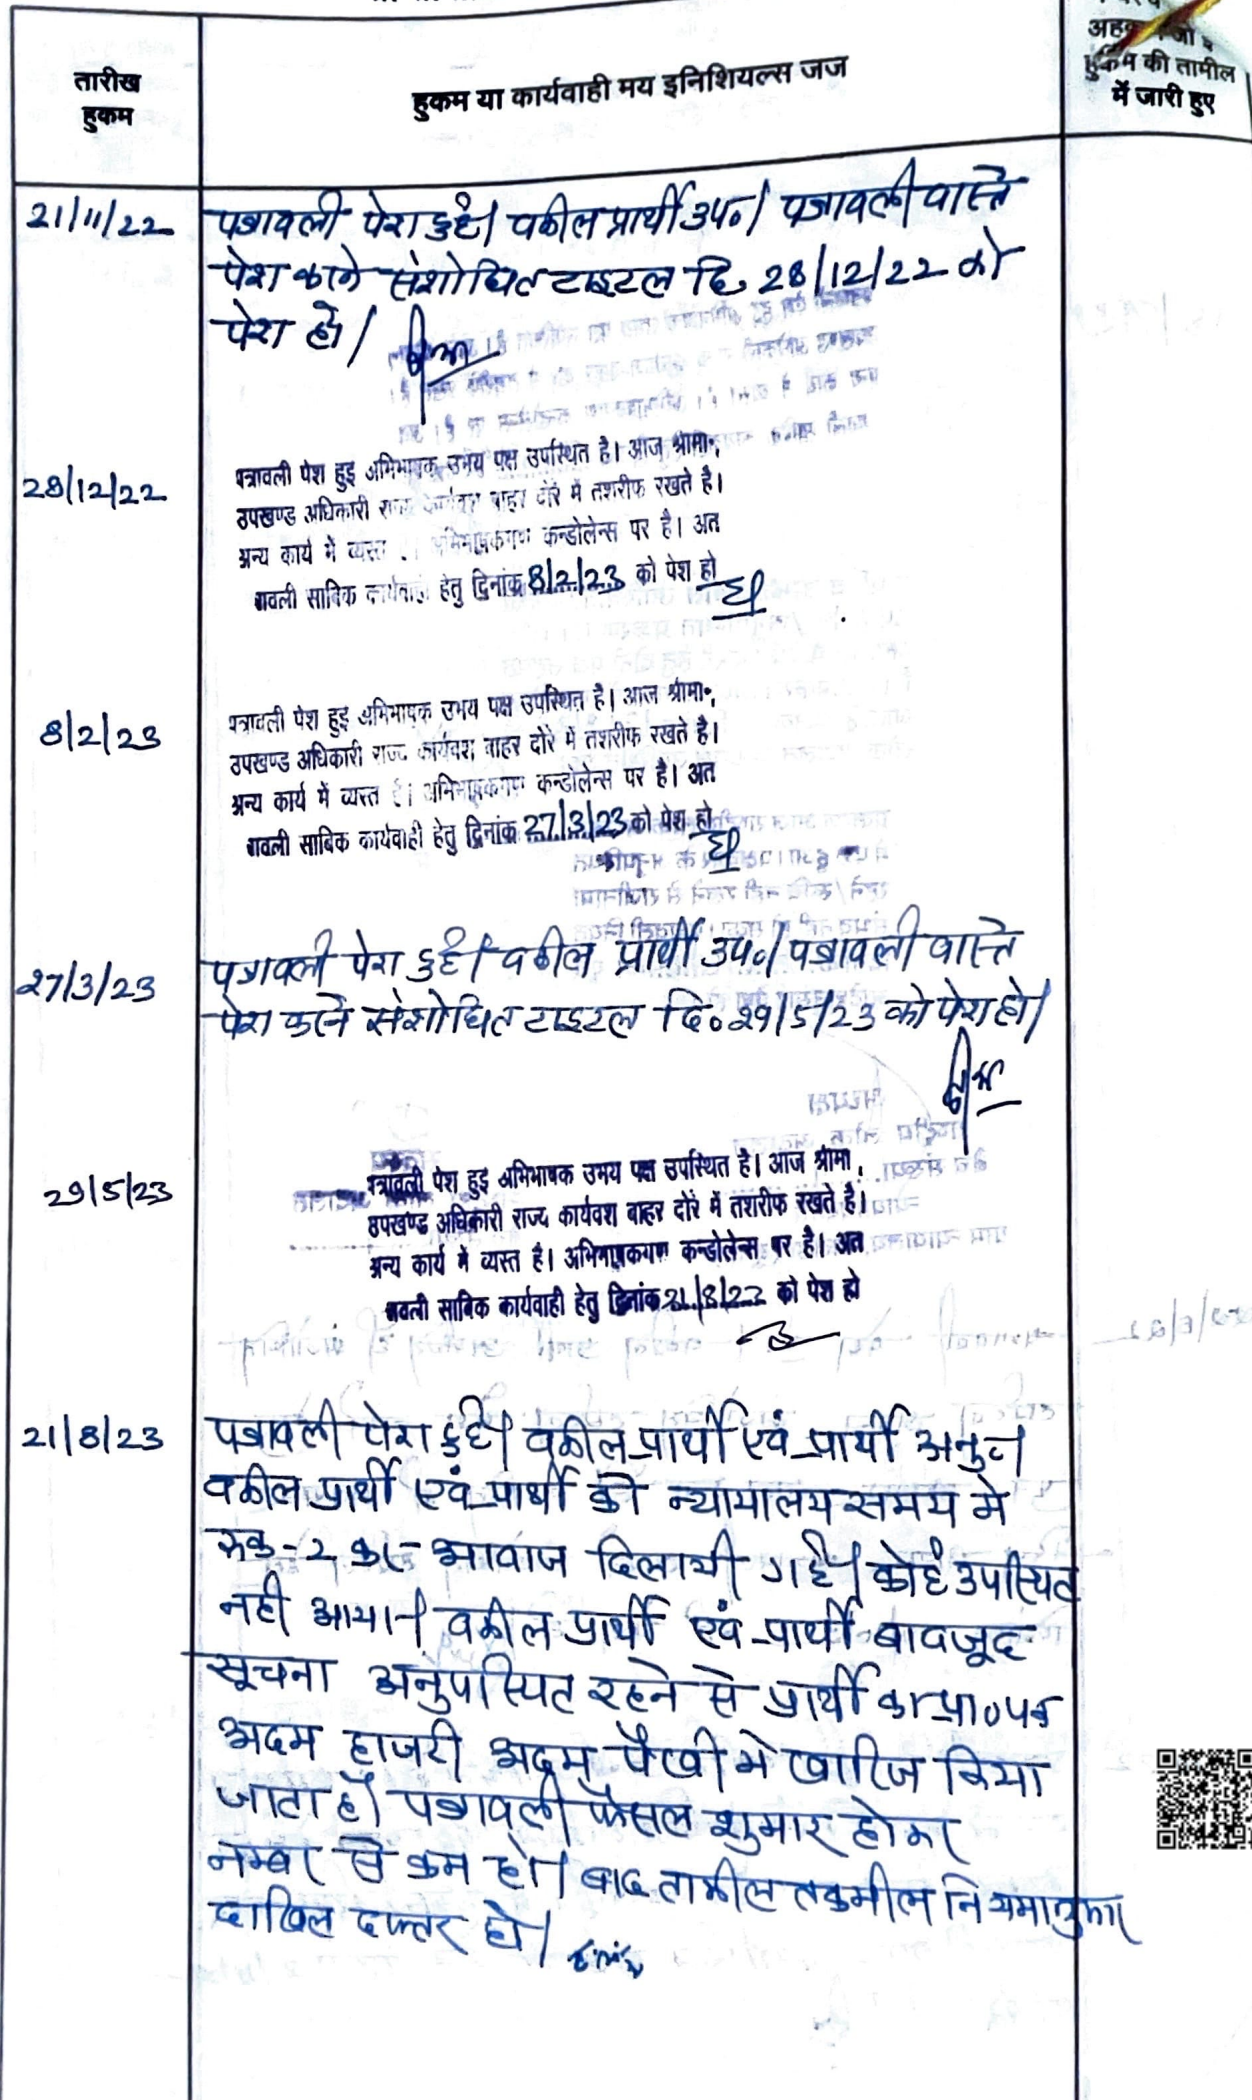 तारीख
हुकम
हुकम या कार्यवाही मय इनिशियल्स जज
हुकम की तामील
में जारी हुए
21/11/22
पत्रावली पेश हुई। वकील प्रार्थी उप०। पत्रावली वास्ते
पेश करने संशोधित टाइटल दि. 28/12/22 को
पेश हो।
28/12/22
पत्रावली पेश हुइ अभिभाषक उभय पक्ष उपस्थित है। आज श्रीमा॰,
उपखण्ड अधिकारी राज्य कार्यवश बाहर दोरे में तशरीफ रखते है।
अन्य कार्य में व्यस्त अभिभाषकगण कन्डोलेन्स पर है। अत
त्रावली साबिक कार्यवाही हेतु दिनांक 8/2/23 को पेश हो
8/2/23
पत्रावली पेश हुइ अभिभाषक उभय पक्ष उपस्थित है। आज श्रीमा॰,
उपखण्ड अधिकारी राज्य कार्यवश बाहर दोरे में तशरीफ रखते है।
अन्य कार्य में व्यस्त है। अभिभाषकगण कन्डोलेन्स पर है। अत
त्रावली साबिक कार्यवाही हेतु दिनांक 27/3/23 को पेश हो
27/3/23
पत्रावली पेश हुई। वकील प्रार्थी उप०। पत्रावली वास्ते
पेश करने संशोधित टाइटल दि० 29/5/23 को पेश हो।
29/5/23
पत्रावली पेश हुइ अभिभाषक उभय पक्ष उपस्थित है। आज श्रीमा,
उपखण्ड अधिकारी राज्य कार्यवश बाहर दोरे में तशरीफ रखते है।
अन्य कार्य में व्यस्त है। अभिभाषकगण कन्डोलेन्स पर है। अत
त्रावली साबिक कार्यवाही हेतु दिनांक 21/8/23 को पेश हो
21/8/23
पत्रावली पेश हुई। वकील प्रार्थी एवं प्रार्थी अनु०।
वकील प्रार्थी एवं प्रार्थी को न्यायालय समय मे
रूक-2 कर आवाज दिलायी गई। कोई उपस्थित
नही आया। वकील प्रार्थी एवं प्रार्थी बावजूद
सूचना अनुपस्थित रहने से प्रार्थी का प्रा०पत्र
अदम हाजरी अदम पैरवी मे खारिज किया
जाता है। पत्रावली फैसल शुमार होकर
नम्बर से कम हो। बाद तामील तकमील नियमानुसार
दाखिल दफ्तर हो।